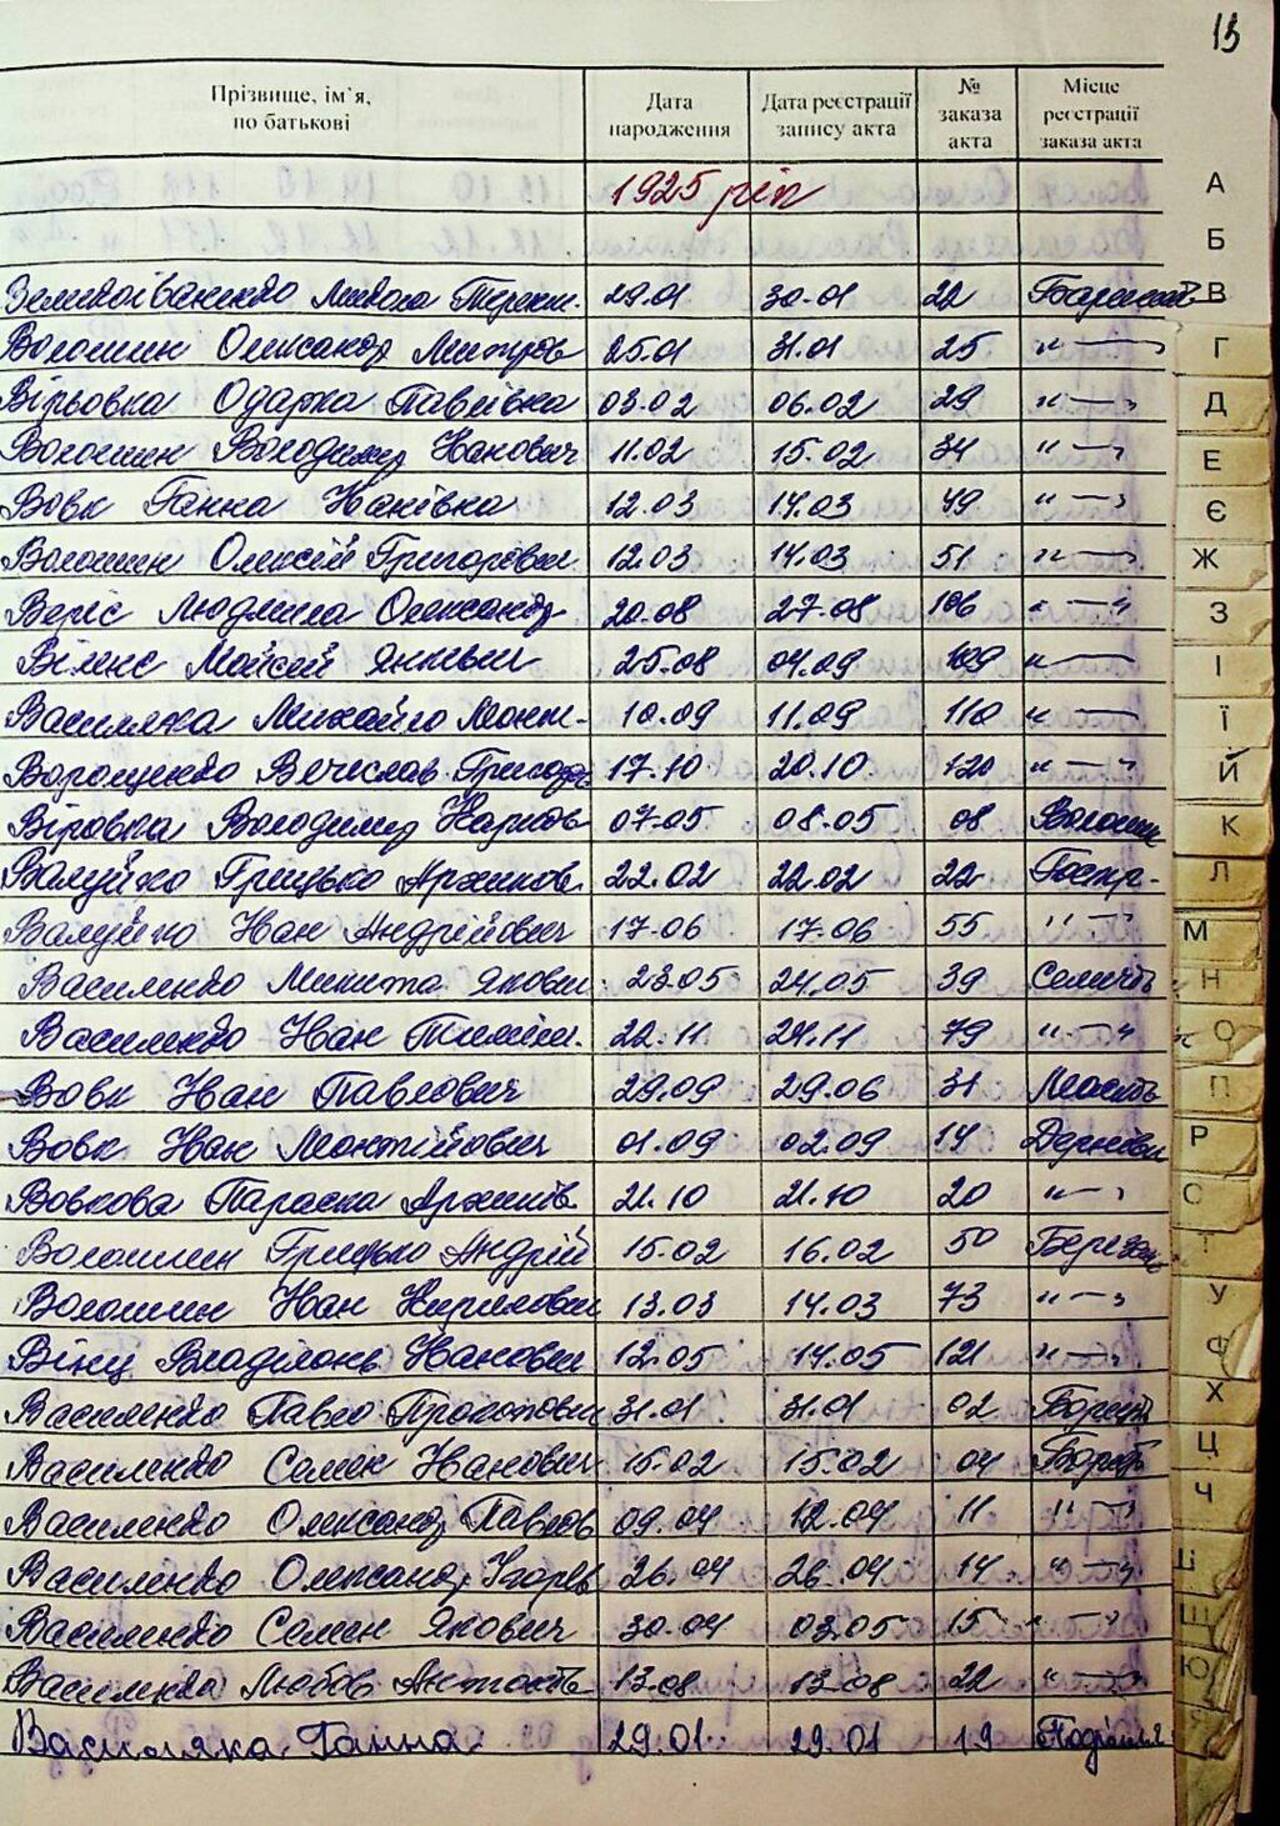 13
Прізвище, ім`я, по батькові Дата народження Дата реєстрації запису акта № заказа акта Місце реєстрації заказа акта
1925 рік
А
Б
Великоіваненко Микола 29.01 30.01 22 В
Волошин Олександр Митров 25.01 31.01 25 " — " Г
Вірьовка Одарка Павлівна 03.02 06.02 29 " — " Д
Волошин Володимир Іванович 11.02 15.02 34 " — " Е
Вовк Ганна Іванівна 12.03 14.03 49 " — " Є
Волошин Олексій Григорович 12.03 14.03 51 " — " Ж
Веріс Людмила Олександр 20.08 27.08 106 " — " З
Мойсей 25.08 04.09 109 " — " І
Василяка Михайло 10.09 11.09 110 " — " Ї
Ворощенко Вечеслав Григор 17.10 20.10 120 " — " Й
Віровка Володимир 07.05 08.05 08 Волошин К
Валуйко Грицько Архипов. 22.02 22.02 22 Л
Валуйко Іван Андрійович 17.06 17.06 55 " — " М
Василенко Микита Якович 23.05 24.05 39 Н
Василенко Іван 22.11 24.11 79 " — " О
Вовк Іван Павлович 29.09 29.06 31 П
Вовк Іван 01.09 02.09 14 Р
Вовкова Параска Архипів 21.10 21.10 20 " — " С
Волошин Грицько Андрій 15.02 16.02 50 Березань Т
Волошин Іван Кирилович 13.03 14.03 73 " — " У
Іванович 12.05 14.05 121 " — " Ф
Василенко Павло Прокопович 31.01 31.01 02 Х
Василенко Семен Іванович 15.02 15.02 04 Ц
Василенко Олександр Павлов 09.04 12.04 11 " — " Ч
Василенко Олександр Ігорев 26.04 26.04 14 " — " Ш
Василенко Семен Якович 30.04 03.05 15 " — " Щ
Василенко Любов 13.08 13.08 22 " — " Ю
Василяка Ганна 29.01 29.01 19 Я